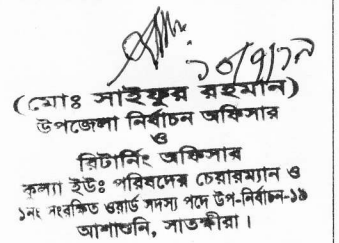 ১০/৭/১৯
(মোঃ সাইফুর রহমান)
উপজেলা নির্বাচন অফিসার
ও
রিটার্নিং অফিসার
কুল্যা ইউঃ পরিষদের চেয়ারম্যান ও
১নং সংরক্ষিত ওয়ার্ড সদস্য পদে উপ-নির্বাচন-১৯
আশাশুনি, সাতক্ষীরা।